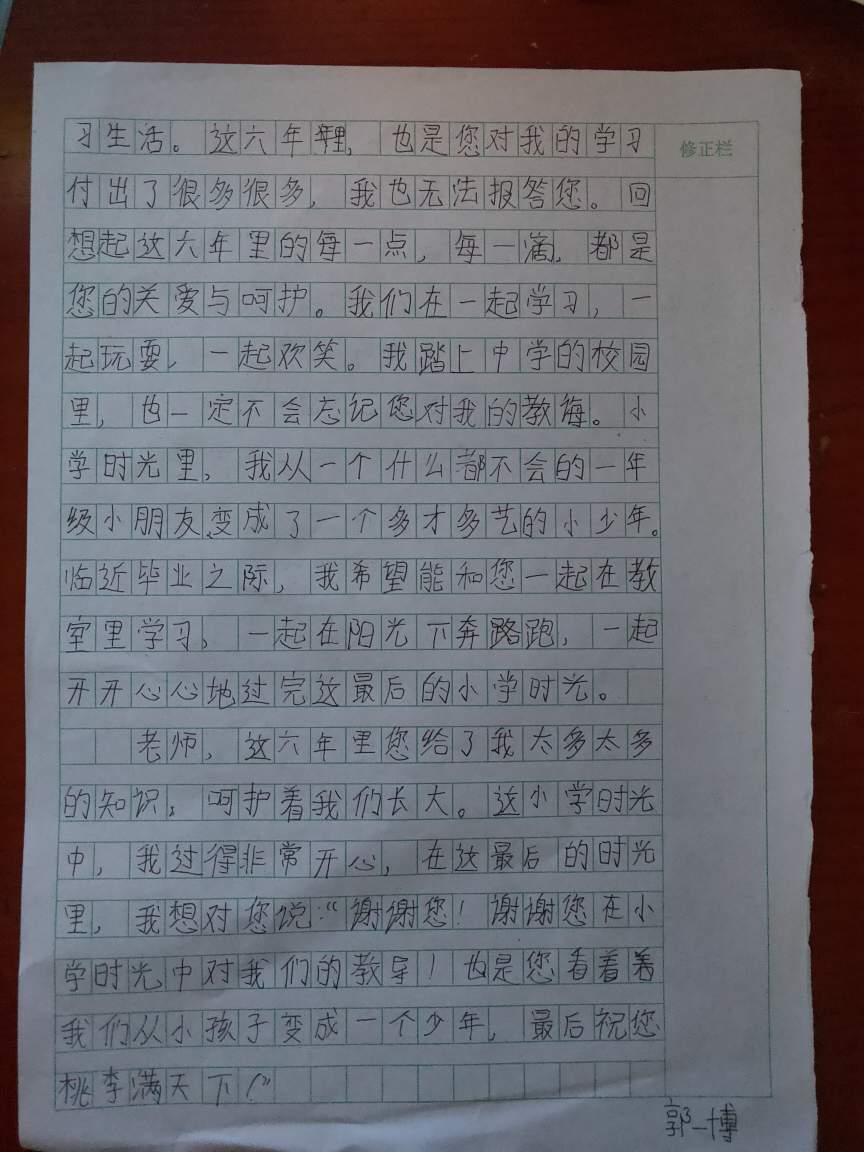 习生活。这六年里，也是您对我的学习
修正栏
付出了很多很多，我也无法报答您。回
想起这六年里的每一点，每一滴，都是
您的关爱与呵护。我们在一起学习，一
起玩耍，一起欢笑。我踏上中学的校园
里，也一定不会忘记您对我的教诲。小
学时光里，我从一个什么都不会的一年
级小朋友、变成了一个多才多艺的小少年。
临近毕业之际，我希望能和您一起在教
室里学习，一起在阳光下奔路跑，一起
开开心心地过完这最后的小学时光。
老师，这六年里您给了我太多太多
的知识，呵护着我们长大。这小学时光
中，我过得非常开心，在这最后的时光
里，我想对您说：“谢谢您！谢谢您在小
学时光中对我们的教导！也是您看着着
我们从小孩子变成一个少年，最后祝您
桃李满天下！”
郭一博